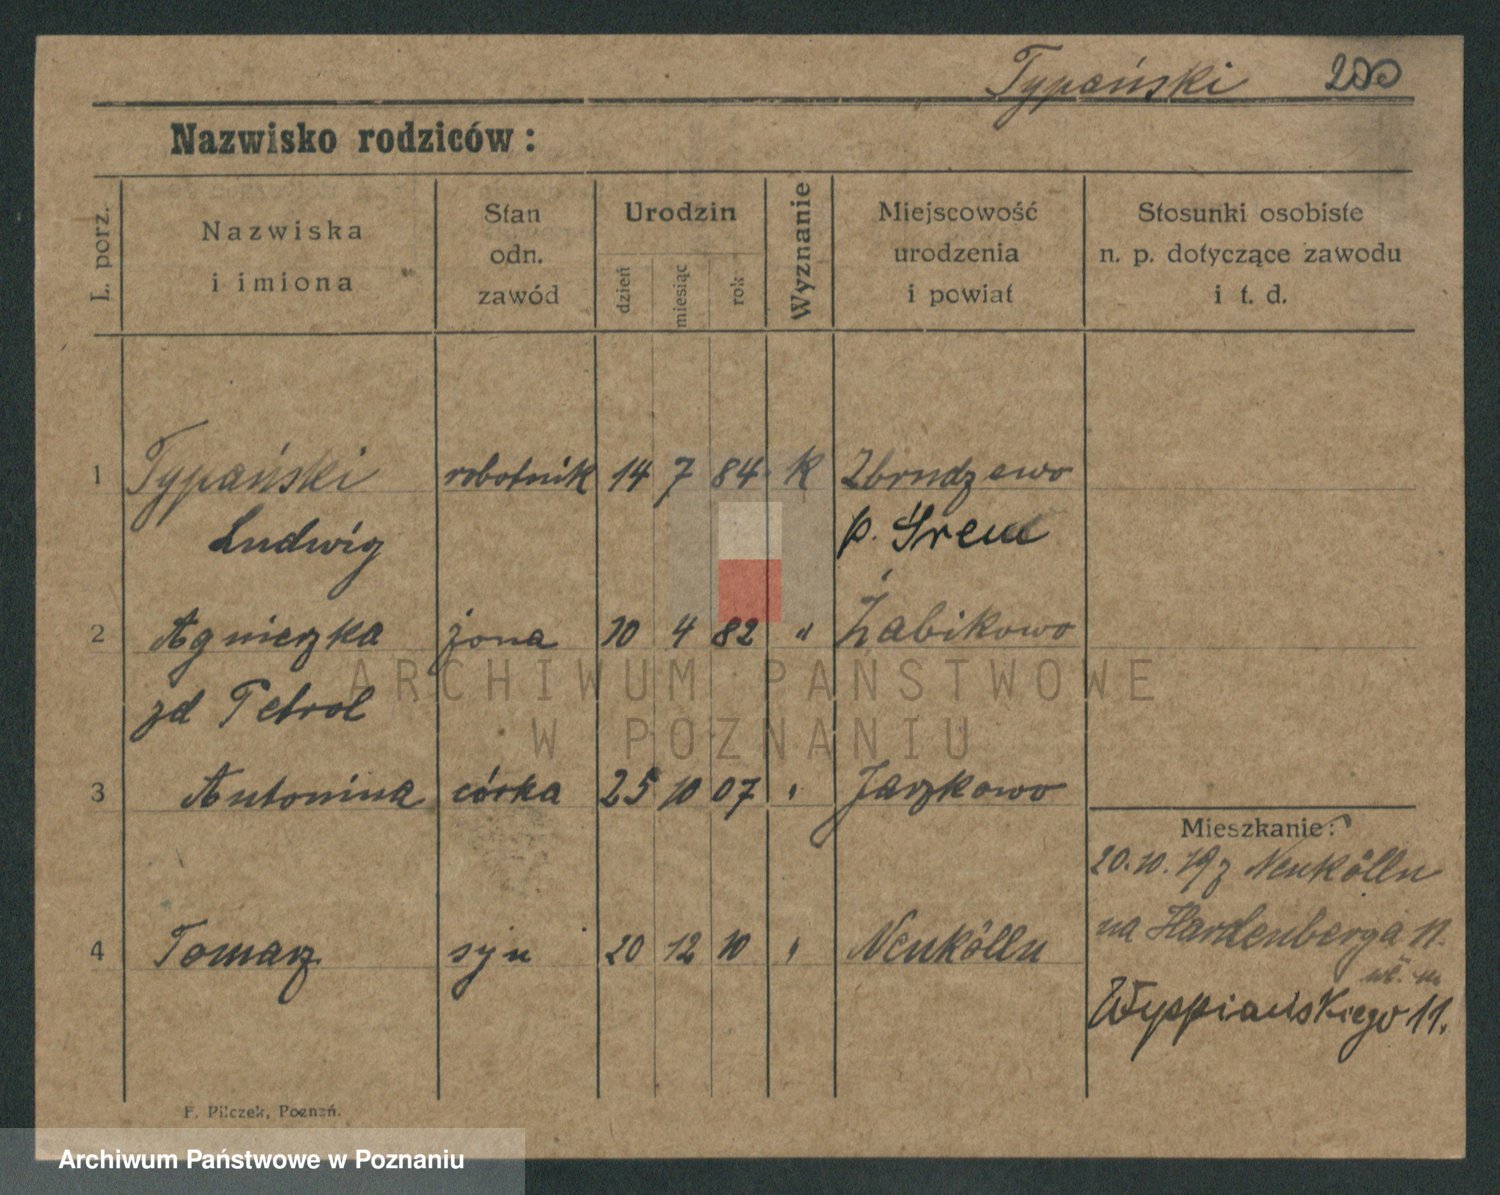 Typański 200
Nazwisko rodziców:
L. porz.
Nazwiska
i imiona
Stan
odn.
zawód
Urodzin
dzień
miesiąc
rok
Wyznanie
Miejscowość
urodzenia
i powiat
Stosunki osobiste
n. p. dotyczące zawodu
i t. d.
1 Typański robotnik 14 7 84 K Zbrudzewo
Ludwig p. Śrem
2 Agnieszka żona 10 4 82 " Żabikowo
zd Petrol
3 Antonina córka 25 10 07 " Jaszkowo
Mieszkanie:
20.10.19 z Neukölln
na Hardenberga 11.
4 Tomasz syn 20 12 10 " Neukölln
Wyspiańskiego 11.
F. Pilczek, Poznań.
ARCHIWUM PAŃSTWOWE
W POZNANIU
Archiwum Państwowe w Poznaniu